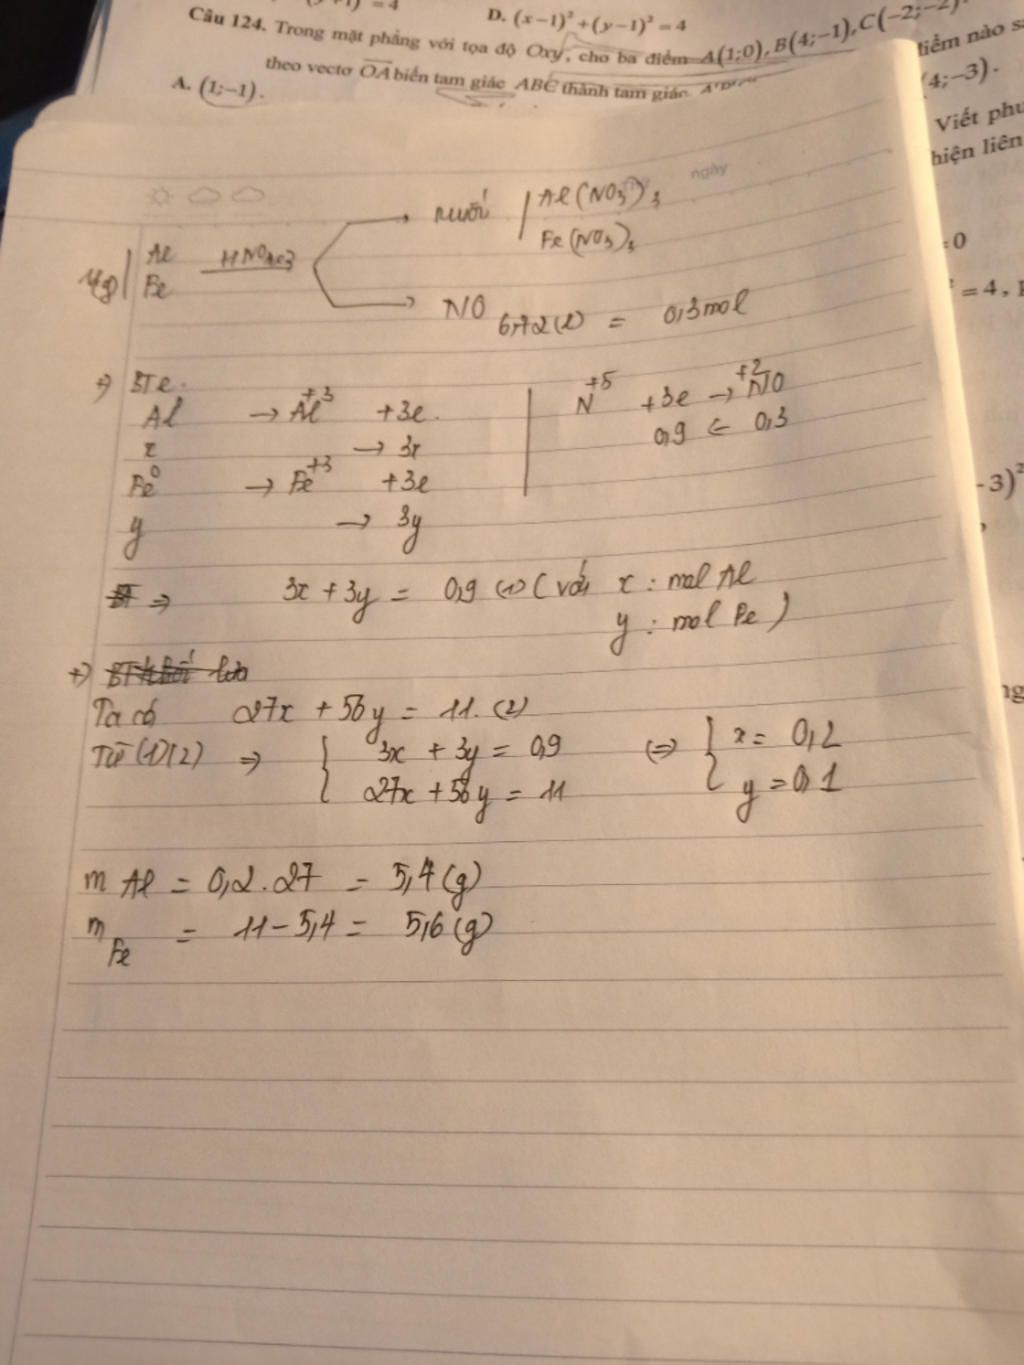 D. (x−1)² + (y−1)² = 4
Câu 124. Trong mặt phẳng với tọa độ Oxy, cho ba điểm A(1;0), B(4;−1), C(−2;−2).
theo vectơ OA biến tam giác ABC thành tam giác A'B'
điểm nào
A. (1;−1).
4;−3).
Viết
hiện liên
ngày
muối Al(NO3)3
Fe(NO3)3
11g Al
Fe
= 0
= 4,
NO 6,72(l) = 0,3mol
+) BTe.
Al → Al+3 +3e.
x → 3x
Fe0 → Fe+3 +3e
y → 3y
N+5 +3e → +2 NO
0,9 ← 0,3
-3)²
=> 3x + 3y = 0,9 (1) (với x : mol Al
y : mol Fe)
+)
Ta có 27x + 56y = 11. (2)
Từ (1)(2) => { 3x + 3y = 0,9
27x + 56y = 11
<=> { x = 0,2
y = 0,1
m Al = 0,2.27 = 5,4(g)
m Fe = 11 − 5,4 = 5,6(g)